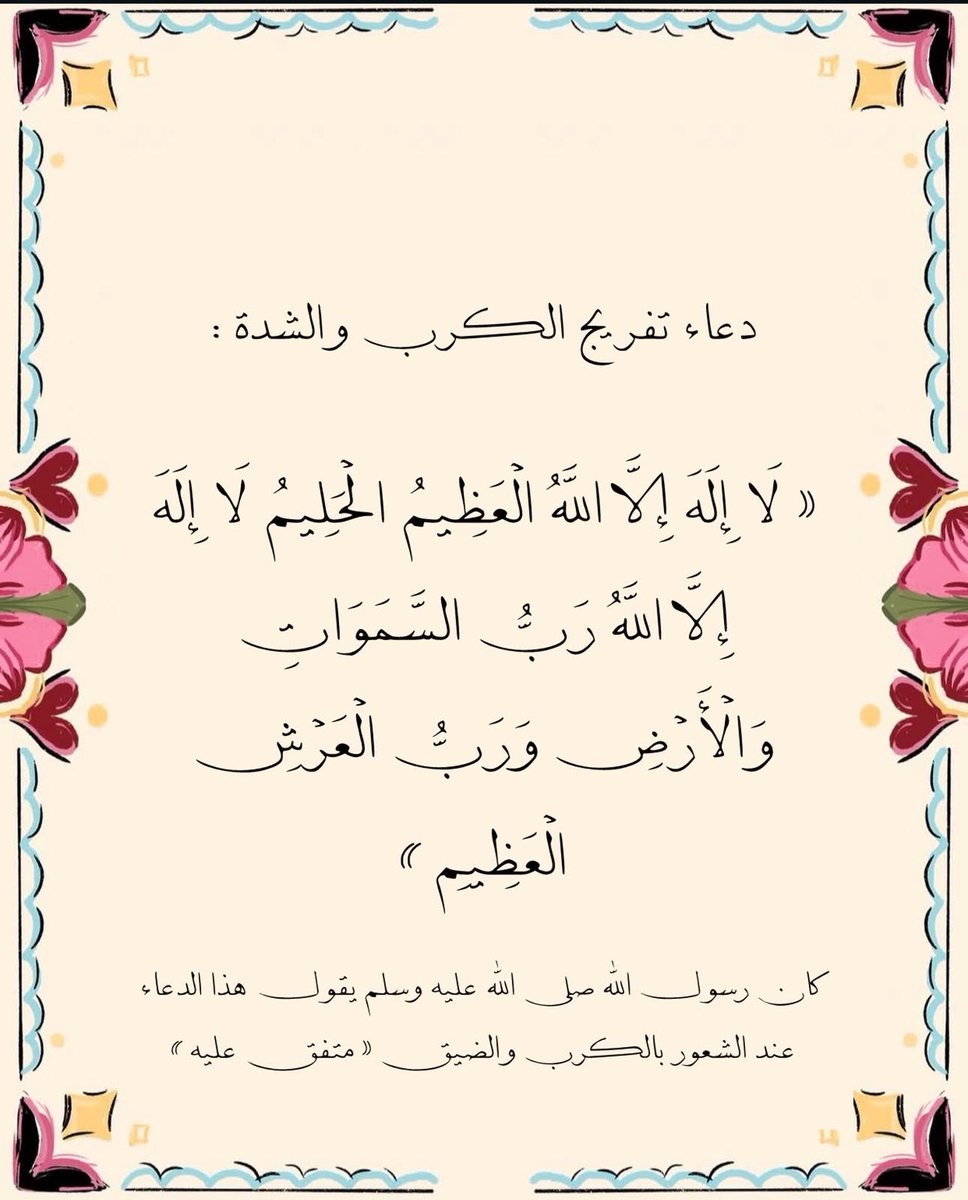 دعاء تفريج الكرب والشدة :
« لَا إِلَهَ إِلَّا اللَّهُ الْعَظِيمُ الْحَلِيمُ لَا إِلَهَ
إِلَّا اللَّهُ رَبُّ السَّمَوَاتِ
وَالْأَرْضِ وَرَبُّ الْعَرْشِ
الْعَظِيمِ »
كان رسول الله صلى الله عليه وسلم يقول هذا الدعاء
عند الشعور بالكرب والضيق « متفق عليه »